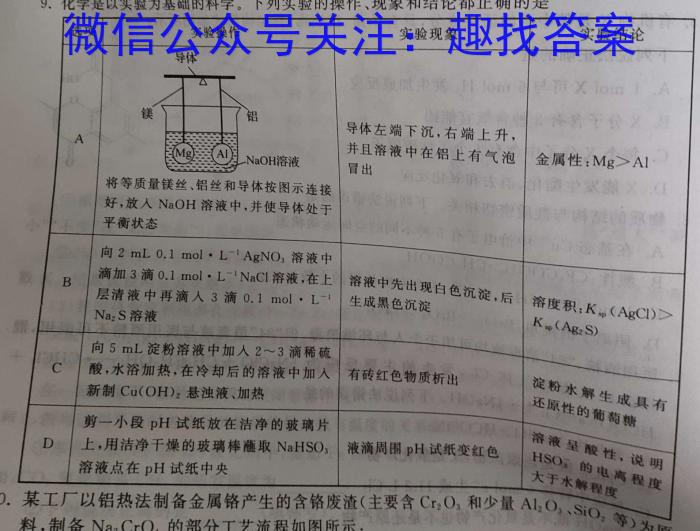 9. 化学是以实验为基础的科学。下列实验的操作、现象和结论都正确的是
微信公众号关注：趣找答案
实验操作
实验现象
实验结论
A
导体
镁
铝
Mg
Al
NaOH溶液
将等质量镁丝、铝丝和导体按图示连接
好,放入 NaOH 溶液中,并使导体处于
平衡状态
导体左端下沉,右端上升,
并且溶液中在铝上有气泡
冒出
金属性:Mg>Al
B
向 2 mL 0.1 mol·L⁻¹ AgNO₃ 溶液中
滴加 3 滴 0.1 mol·L⁻¹ NaCl 溶液,在上
层清液中再滴入 3 滴 0.1 mol·L⁻¹
Na₂S 溶液
溶液中先出现白色沉淀,后
生成黑色沉淀
溶度积:Kₛₚ(AgCl)>
Kₛₚ(Ag₂S)
C
向 5 mL 淀粉溶液中加入 2~3 滴稀硫
酸,水浴加热,在冷却后的溶液中加入
新制 Cu(OH)₂ 悬浊液、加热
有砖红色物质析出
淀粉水解生成具有
还原性的葡萄糖
D
剪一小段 pH 试纸放在洁净的玻璃片
上,用洁净干燥的玻璃棒蘸取 NaHSO₃
溶液点在 pH 试纸中央
液滴周围 pH 试纸变红色
溶液呈酸性,说明
HSO₃⁻ 的电离程度
大于水解程度
0. 某工厂以铝热法制备金属铬产生的含铬废渣(主要含 Cr₂O₃ 和少量 Al₂O₃、SiO₂ 等)为原
料,制备 Na₂CrO₄ 的部分工艺流程如图所示.